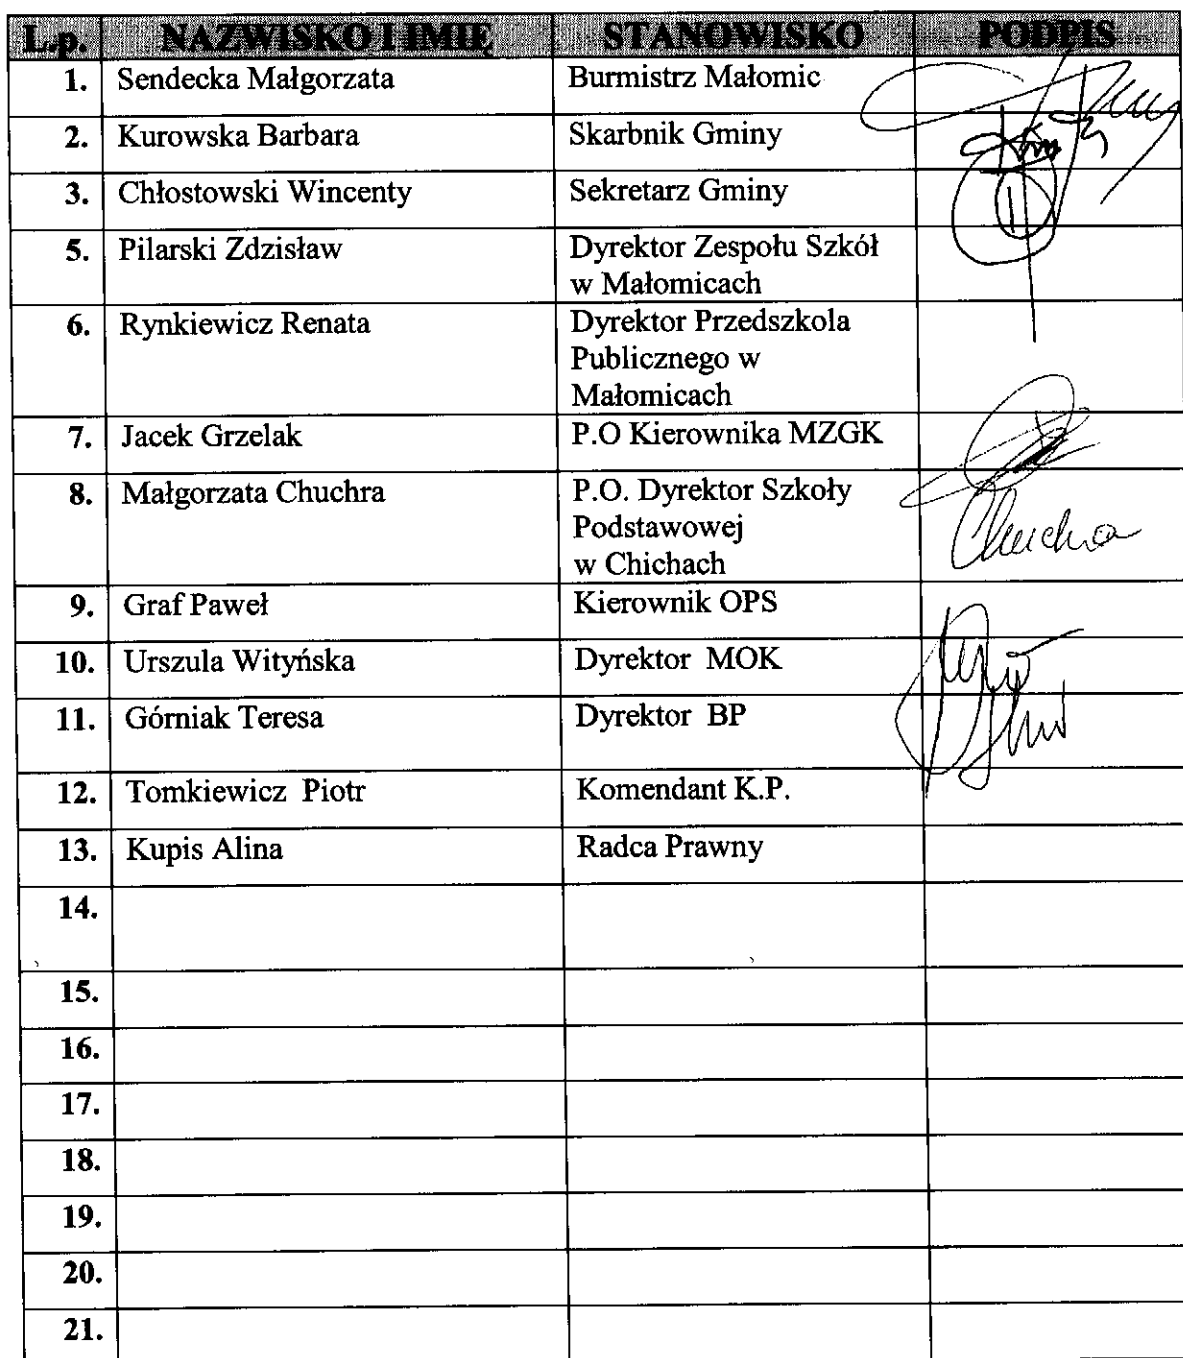 L.p. NAZWISKO I IMIĘ STANOWISKO PODPIS
1. Sendecka Małgorzata Burmistrz Małomic
2. Kurowska Barbara Skarbnik Gminy
3. Chłostowski Wincenty Sekretarz Gminy
5. Pilarski Zdzisław Dyrektor Zespołu Szkół
w Małomicach
6. Rynkiewicz Renata Dyrektor Przedszkola
Publicznego w
Małomicach
7. Jacek Grzelak P.O Kierownika MZGK
8. Małgorzata Chuchra P.O. Dyrektor Szkoły
Podstawowej
w Chichach
9. Graf Paweł Kierownik OPS
10. Urszula Wityńska Dyrektor MOK
11. Górniak Teresa Dyrektor BP
12. Tomkiewicz Piotr Komendant K.P.
13. Kupis Alina Radca Prawny
14.
15.
16.
17.
18.
19.
20.
21.